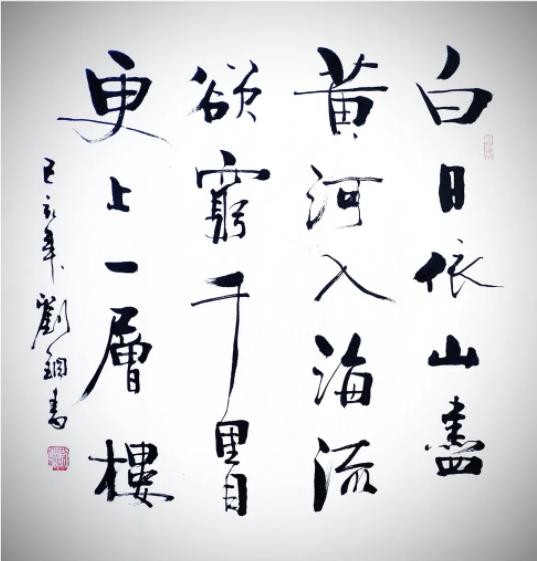 白日依山盡
黃河入海流
欲窮千里目
更上一層樓
己亥年